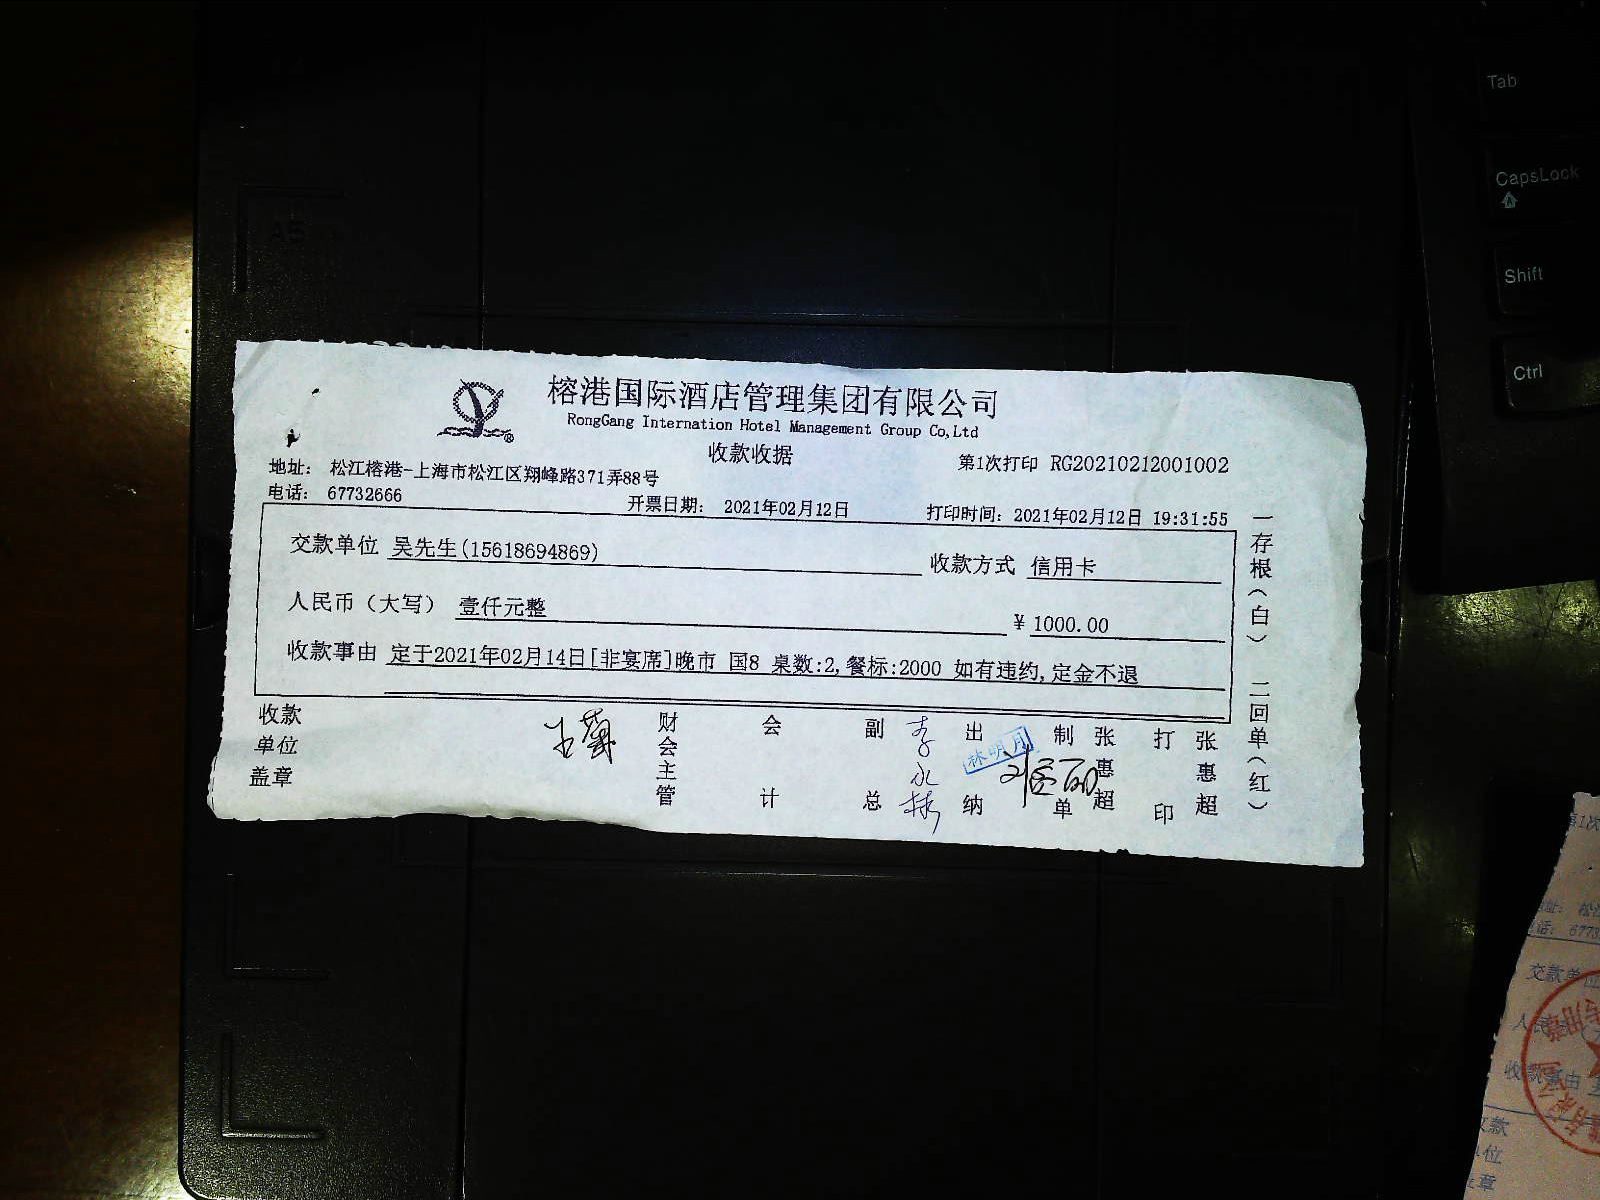 榕港国际酒店管理集团有限公司
RongGang Internation Hotel Management Group Co,Ltd
收款收据
第1次打印 RG20210212001002
地址： 松江榕港-上海市松江区翔峰路371弄88号
电话： 67732666
开票日期： 2021年02月12日
打印时间：2021年02月12日 19:31:55
交款单位 吴先生(15618694869)
收款方式 信用卡
人民币（大写） 壹仟元整
¥ 1000.00
收款事由 定于2021年02月14日[非宴席]晚市 国8 桌数:2,餐标:2000 如有违约,定金不退
收款单位盖章
财会主管
会计
副总
李永
出纳
林明月
制单
张惠超
打印
张惠超
一存根（白） 二回单（红）
Tab
CapsLock
Shift
Ctrl
A5
第1次
地址： 松江
电话： 6773
交款单位
人民
收款事由
收款
单位
盖章